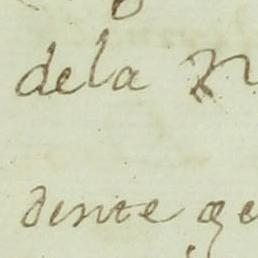 dela
dente ge